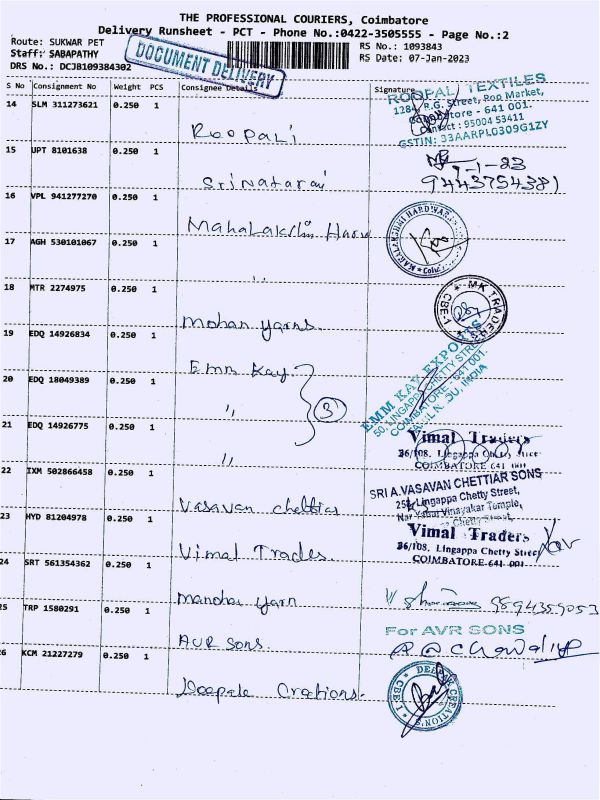 THE PROFESSIONAL COURIERS, Coimbatore
Delivery Runsheet - PCT - Phone No.:0422-3505555 - Page No.:2
Route: SUKWAR PET
RS No.: 1093843
Staff: SABAPATHY
RS Date: 07-Jan-2023
DRS No.: DCJB109384302
DOCUMENT DELIVERY
S No Consignment No Weight PCS Consignee Details Signature
14 SLM 311273621 0.250 1
Roopali
ROOPAL TEXTILES
128 R.G. Street, Rop Market,
Coimbatore - 641 001.
Contact : 95004 53411
GSTIN: 33AARPL0309G1ZY
15 UPT 8101638 0.250 1
Srinataraj
7-1-23
9443754381
16 VPL 941277270 0.250 1
Mahalakshmi Hard
MAHALAKSHMI HARDWARE
17 AGH 530101067 0.250 1
"
18 MTR 2274975 0.250 1
Mohan yarns.
MK TRADERS
CBE-1
19 EDQ 14926834 0.250 1
Emm Kay.
EMM KAY EXPORTS
50, LINGAPPA CHETTY STREET
COIMBATORE - 641 001.
TAMIL NADU, INDIA
20 EDQ 18049389 0.250 1
"
3
21 EDQ 14926775 0.250 1
"
Vimal Traders
36/108, Lingappa Chetty Street
COIMBATORE 641 001
22 IXM 502866458 0.250 1
Vasavan chettiar
SRI A.VASAVAN CHETTIAR SONS
Lingappa Chetty Street,
Vinayakar Temple,
Chetty Street,
23 HYD 81204978 0.250 1
Vimal Trades.
Vimal Traders
36/108, Lingappa Chetty Street
COIMBATORE-641 001
24 SRT 561354362 0.250 1
Manohar yarn
9894359053
25 TRP 1580291 0.250 1
AVR Sons.
For AVR SONS
26 KCM 21227279 0.250 1
Deepale Crations.
DEEPAK CREATION'S
CBE - 1